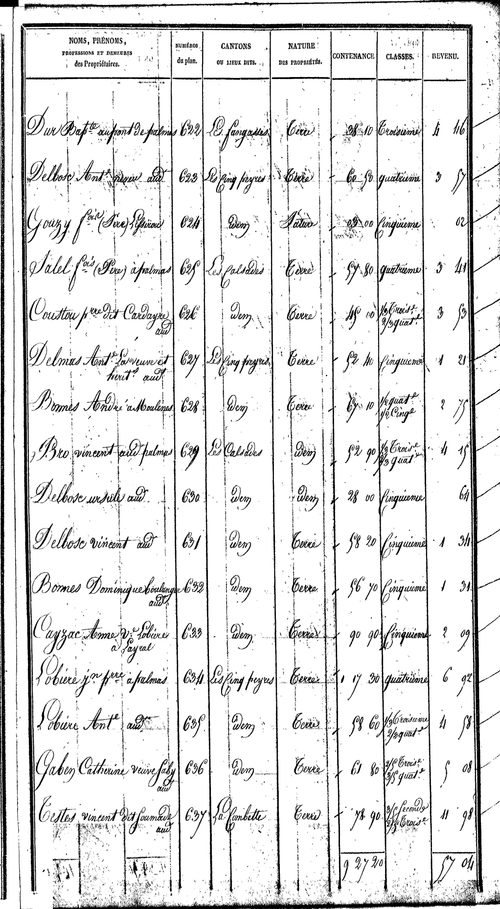 NOMS, PRÉNOMS, PROFESSIONS ET DEMEURES des Propriétaires. NUMÉROS du plan. CANTONS OU LIEUX DITS. NATURE DES PROPRIÉTÉS. CONTENANCE CLASSES. REVENU.
Dur Bapte au pont de palmas 622 Les fangasses Terre 38 10 Troisième 4 46
Delbosc Ant. aud. 623 Les Cinq peyres Terre 60 50 quatrième 3 57
Gouzy fois (Père) 624 idem Pature 03 00 Cinquième 02
Salel fois (Père) à palmas 625 Les Calsades Terre 57 80 quatrième 3 41
Coustou pierre dit Cardayre 626 idem Terre 45 10 1/3 Trois.e 3 53
aud. 2/3 quat.e
Delmas Ant.e La veuve et 627 Les Cinq peyres Terre 52 40 Cinquième 1 21
hérit.s aud.
Bonnes André à Moulenes 628 idem Terre 67 10 1/2 quat.e 2 75
1/2 Cinq.e
Bro vincent aud. palmas 629 Les Calsades idem 52 90 1/3 Trois.e 4 15
2/3 quat.e
Delbosc ursule aud. 630 idem idem 28 00 Cinquième 64
Delbosc vincent aud. 631 idem Terre 58 20 Cinquième 1 34
Bonnes Dominique boulanger 632 idem Terre 56 70 Cinquième 1 31
aud.
Cayzac Anne v.e Lobière 633 idem Terre 90 90 Cinquième 2 09
à Layral
Lobière jn pierre à palmas 634 Les Cinq peyres Terre 1 17 30 quatrième 6 92
Lobière Ant.e aud. 635 idem Terre 58 60 1/3 Troisième 4 58
2/3 quat.e
Gaben Catherine veuve 636 idem Terre 61 80 2/5 Trois.e 5 08
aud. 3/5 quat.e
Testes vincent dit 637 La Combette Terre 78 90 Seconde 11 98
aud. Trois.e
9 27 20 57 04